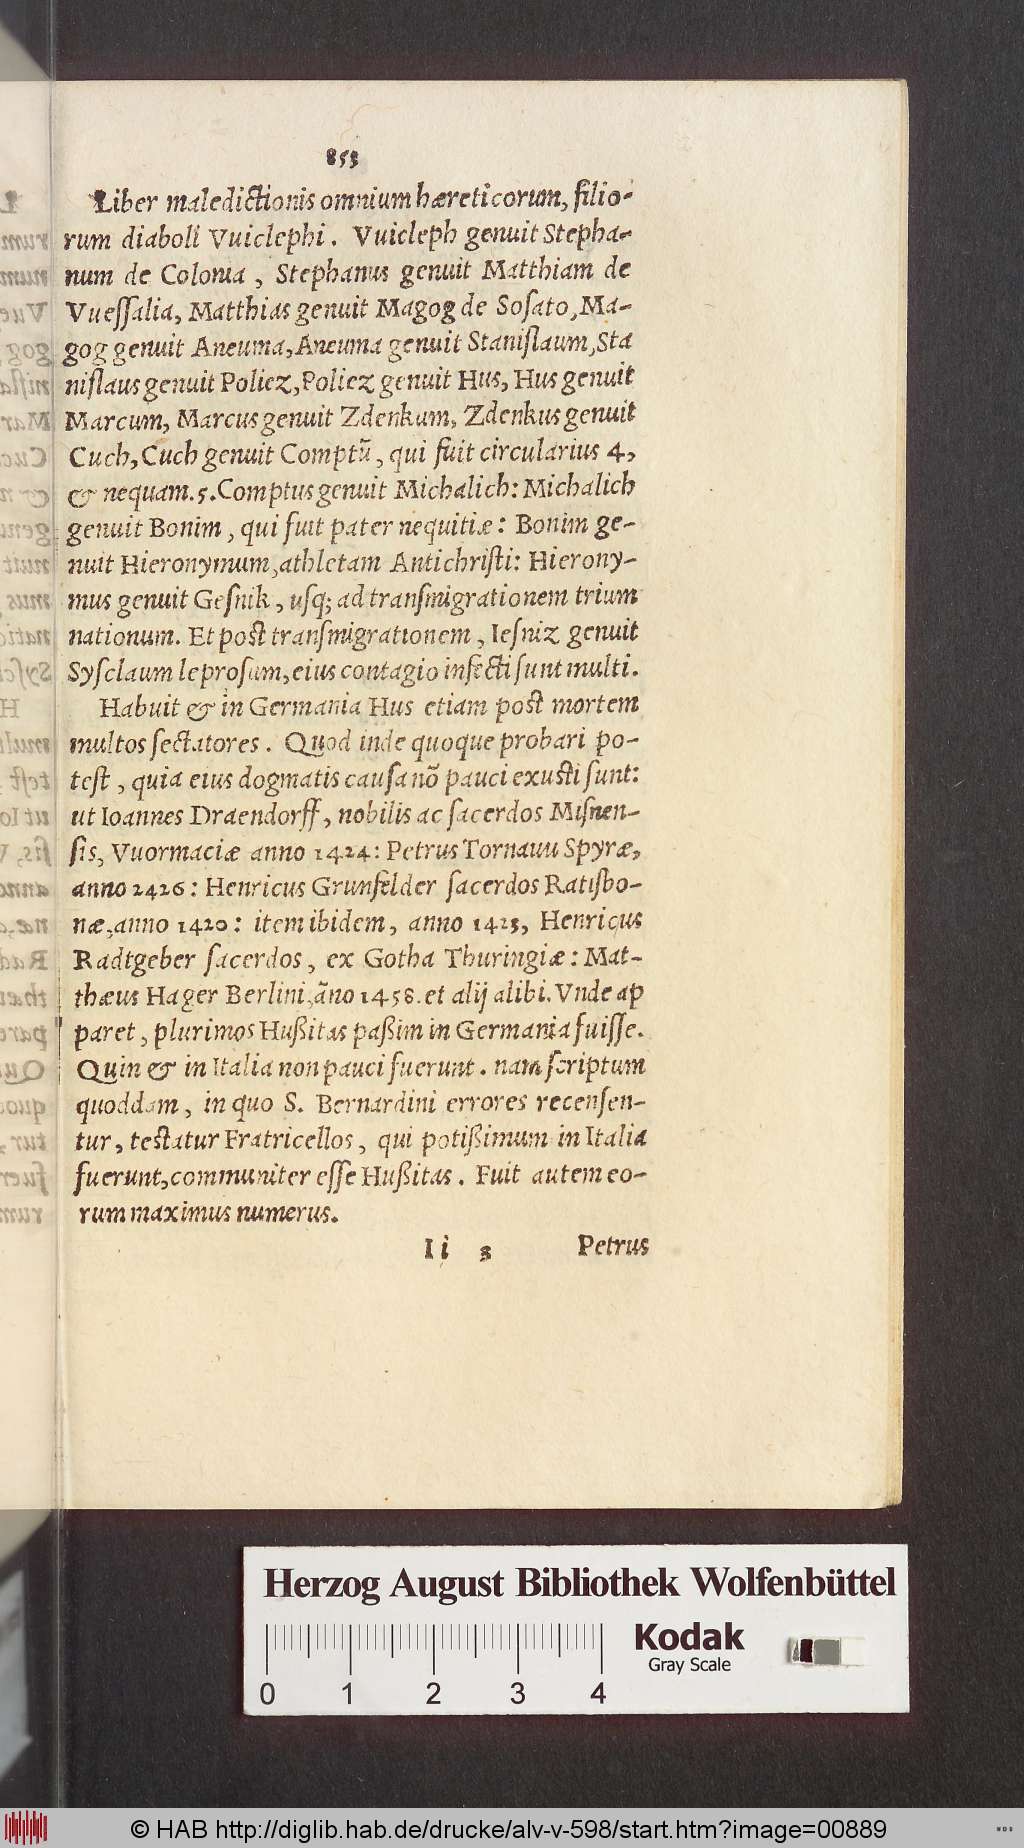 853
Liber maledictionis omnium hæreticorum, filio-
rum diaboli Vuiclephi. Vuicleph genuit Stepha-
num de Colonia, Stephanus genuit Matthiam de
Vueſſalia, Matthias genuit Magog de Soſato, Ma-
gog genuit Aneuma, Aneuma genuit Staniſlaum, Sta
niſlaus genuit Policz, Policz genuit Hus, Hus genuit
Marcum, Marcus genuit Zdenkum, Zdenkus genuit
Cuch, Cuch genuit Comptũ, qui fuit circularius 4,
& nequam. 5. Comptus genuit Michalich: Michalich
genuit Bonim, qui fuit pater nequitiæ: Bonim ge-
nuit Hieronymum, athletam Antichriſti: Hierony-
mus genuit Geſnik, uſq; ad tranſmigrationem trium
nationum. Et poſt tranſmigrationem, Ieſniz genuit
Syſclaum leproſum, eius contagio infecti ſunt multi.
Habuit & in Germania Hus etiam poſt mortem
multos ſectatores. Quod inde quoque probari po-
teſt, quia eius dogmatis cauſa nõ pauci exuſti ſunt:
ut Ioannes Draendorff, nobilis ac ſacerdos Miſnen-
ſis, Vuormaciæ anno 1424: Petrus Tornauu Spyræ,
anno 1426: Henricus Grunfelder ſacerdos Ratiſbo-
næ, anno 1420: item ibidem, anno 1423, Henricus
Radtgeber ſacerdos, ex Gotha Thuringiæ: Mat-
thæus Hager Berlini, ãno 1458. et alij alibi. Vnde ap
paret, plurimos Hußitas paßim in Germania fuiſſe.
Quin & in Italia non pauci fuerunt. nam ſcriptum
quoddam, in quo S. Bernardini errores recenſen-
tur, teſtatur Fratricellos, qui potißimum in Italia
fuerunt, communiter eſſe Hußitas. Fuit autem eo-
rum maximus numerus.
Ii 3 Petrus
Herzog August Bibliothek Wolfenbüttel
Kodak
Gray Scale
0 1 2 3 4
© HAB http://diglib.hab.de/drucke/alv-v-598/start.htm?image=00889